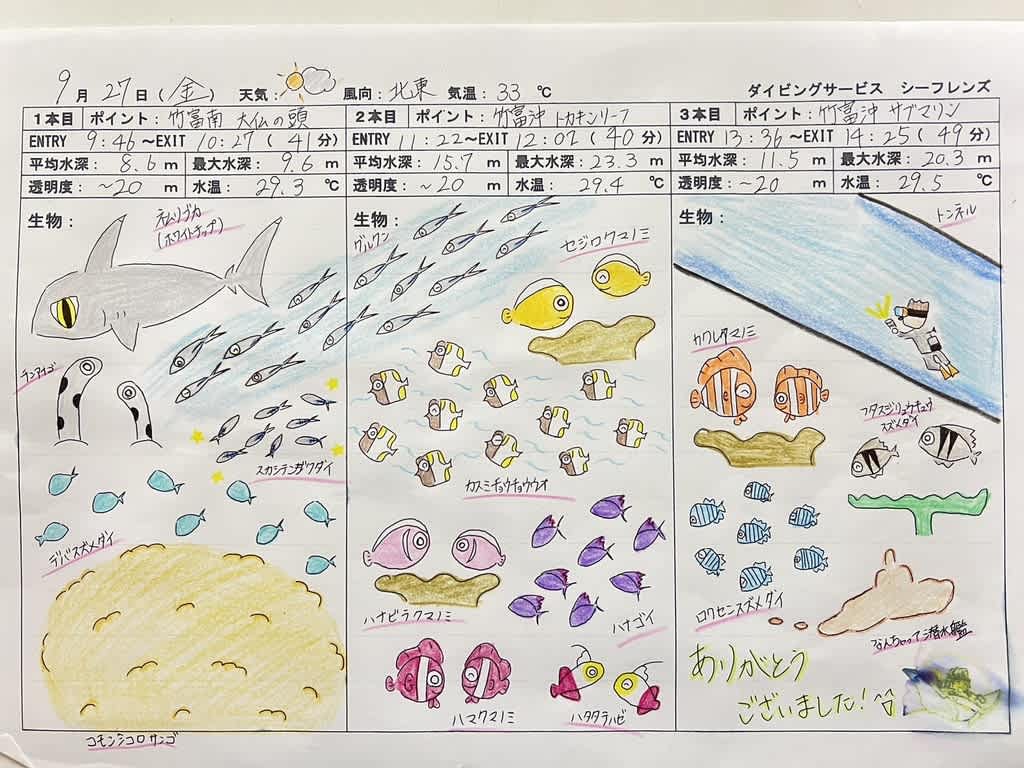 9月27日(金) 天気: 風向: 北東 気温: 33 ℃ ダイビングサービス シーフレンズ
1本目 ポイント: 竹富南 大仏の頭
ENTRY 9:46 ~EXIT 10:27 ( 41 分)
平均水深: 8.6 m 最大水深: 9.6 m
透明度: ~20 m 水温: 29.3 ℃
生物:
ネムリブカ
(ホワイトチップ)
チンアナゴ
スカシテンジクダイ
デバスズメダイ
コモンシコロサンゴ
2本目 ポイント: 竹富沖 トカキンリーフ
ENTRY 11:22 ~EXIT 12:02 ( 40 分)
平均水深: 15.7 m 最大水深: 23.3 m
透明度: ~20 m 水温: 29.4 ℃
生物:
グルクン
セジロクマノミ
カスミチョウチョウウオ
ハナビラクマノミ
ハナゴイ
ハマクマノミ
ハタタテハゼ
3本目 ポイント: 竹富沖 サブマリン
ENTRY 13:36 ~EXIT 14:25 ( 49 分)
平均水深: 11.5 m 最大水深: 20.3 m
透明度: ~20 m 水温: 29.5 ℃
生物:
トンネル
カクレクマノミ
フタスジリュウキュウ
スズメダイ
ロクセンスズメダイ
なんちゃって潜水艦
ありがとう
ございました! ^^